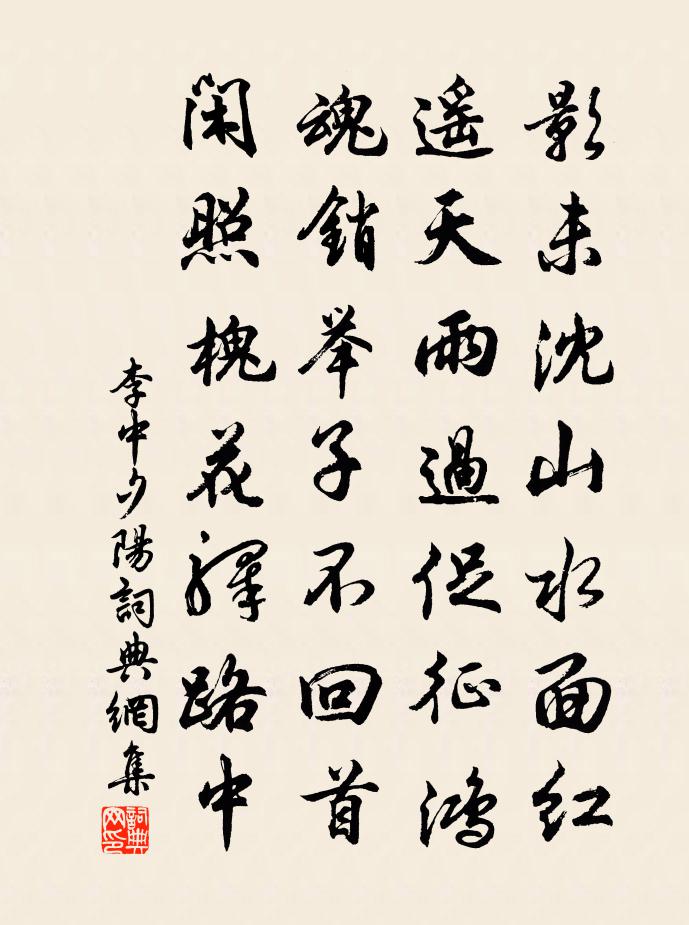 影未沈山水面红
遥天雨過促征鸿
魂銷举子不回首
闲照槐花驿路中
李中夕陽詞典網集
詞典网印